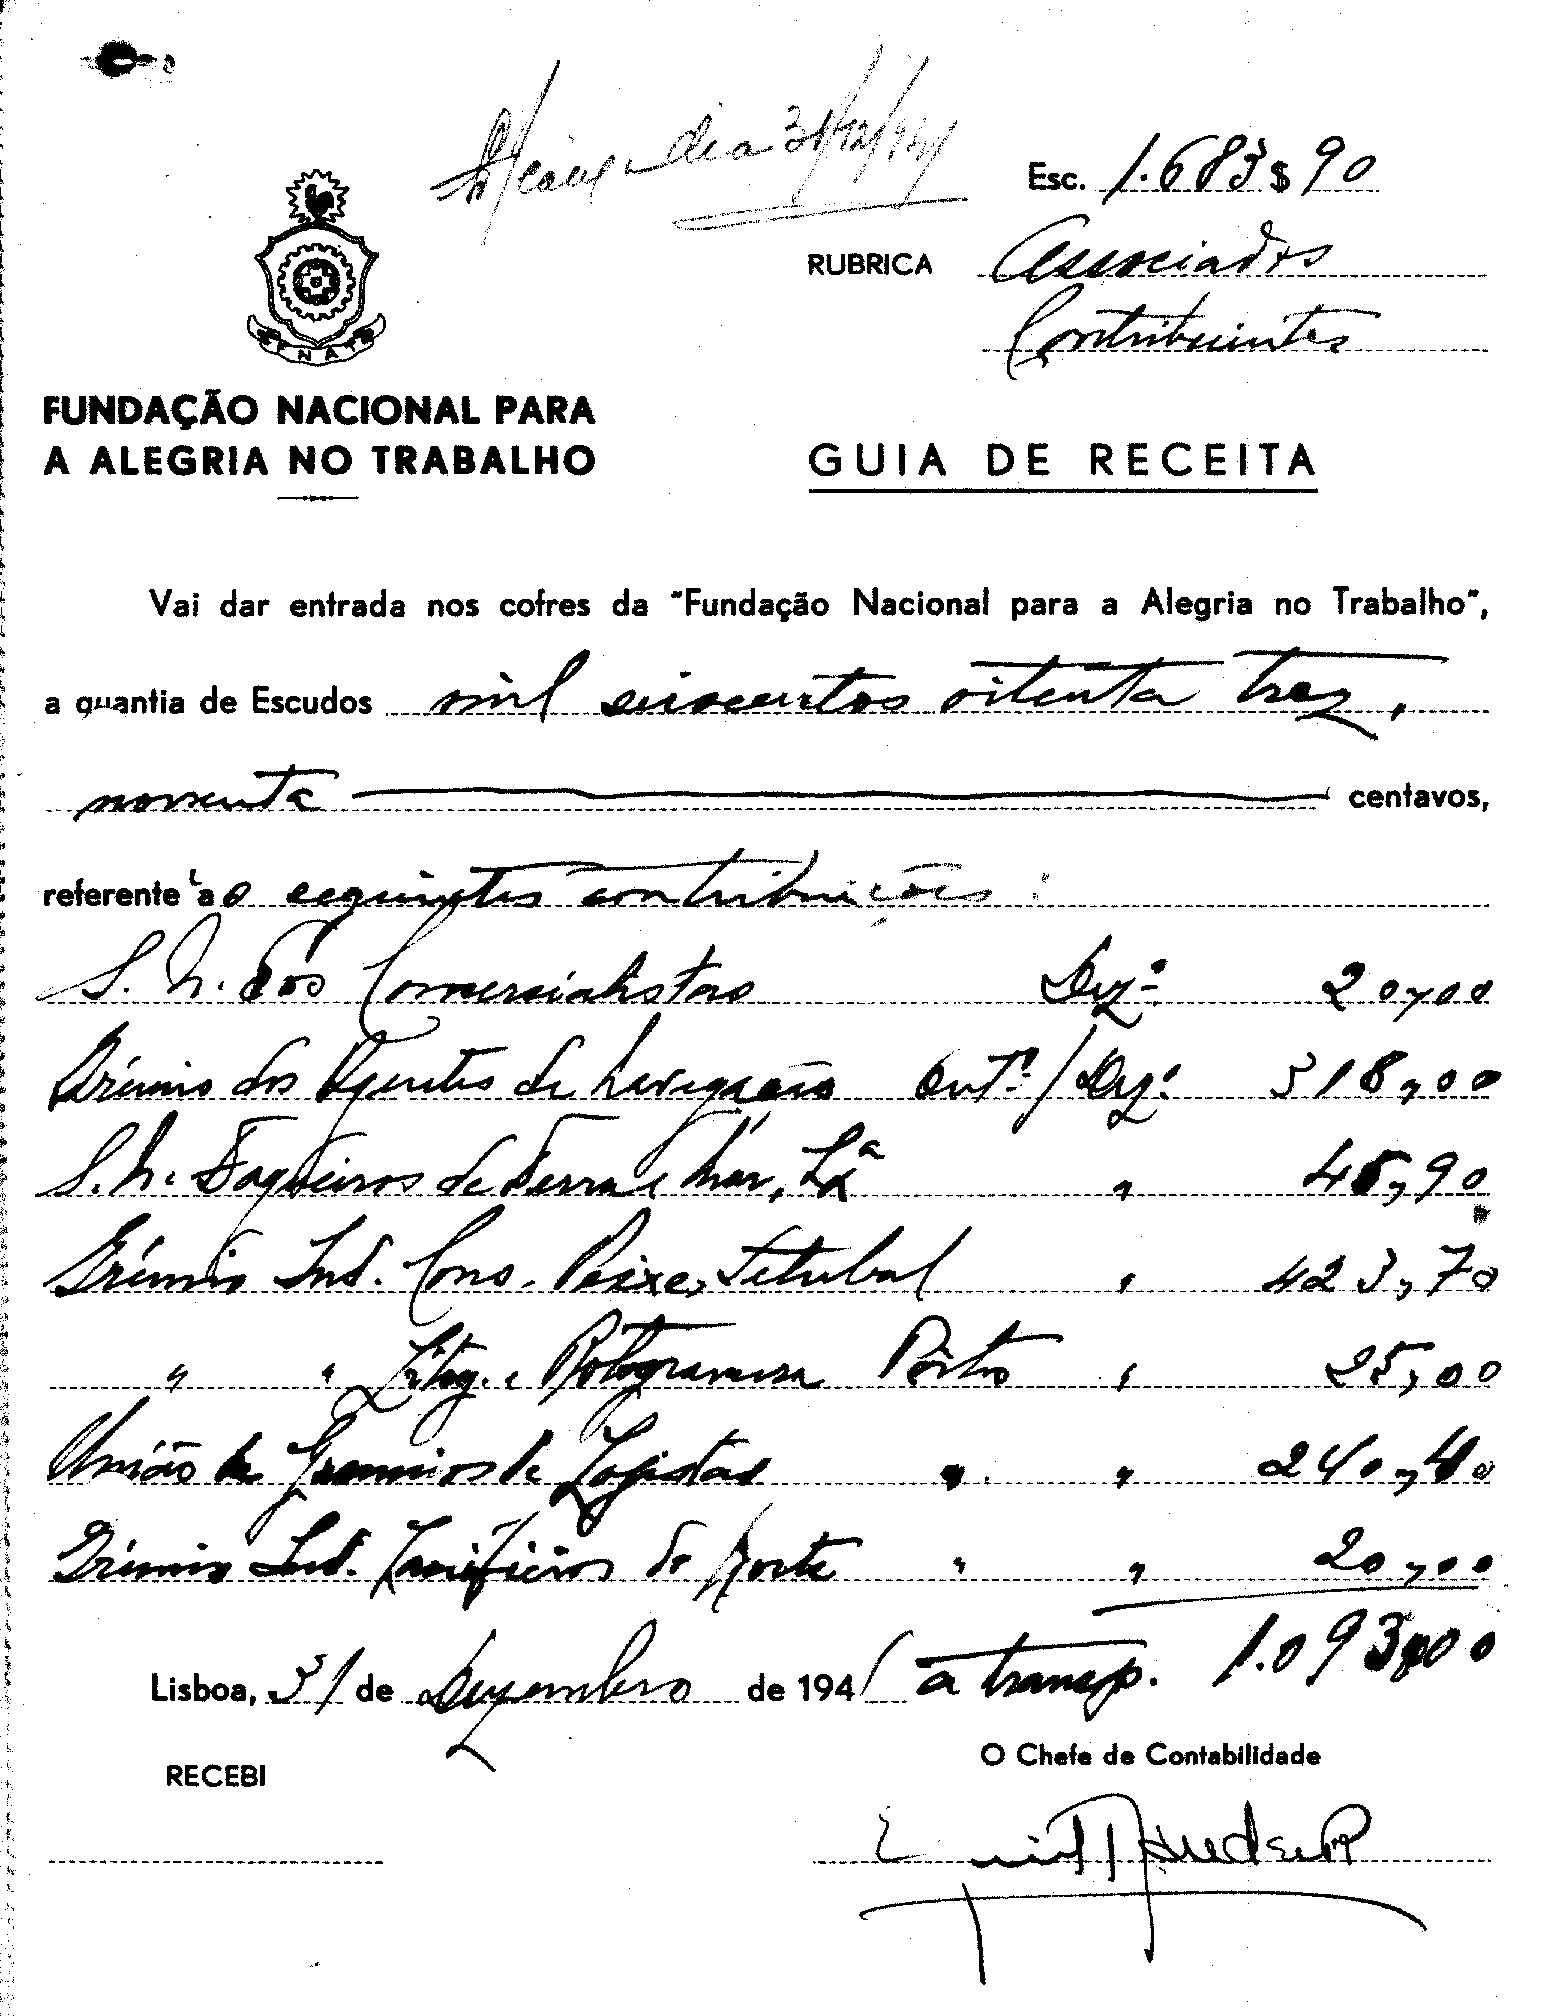 dia 31/12/941
Esc. 1.683$90
RUBRICA Associados
Contribuintes
FENAT
FUNDAÇÃO NACIONAL PARA
A ALEGRIA NO TRABALHO
GUIA DE RECEITA
Vai dar entrada nos cofres da "Fundação Nacional para a Alegria no Trabalho",
a quantia de Escudos mil seiscentos oitenta trez,
noventa centavos,
referente às seguintes contribuições:
S. N. dos Comercialistas Dezº 20,00
Grémio dos Agentes de Navegação Outº/Dezº 318,00
S. N. Fogueiros de Terra e Mar, Lxª " 45,90
Grémio Ind. Cons. Peixe, Setubal " 423,70
" " Litog. e Rotogravura Pôrto " 25,00
União de Gremios de Logistas " " 240,40
Grémio Ind. Lanifícios do Norte " " 20,00
Lisboa, 31 de Dezembro de 1941 a transp. 1.093,00
RECEBI
O Chefe de Contabilidade